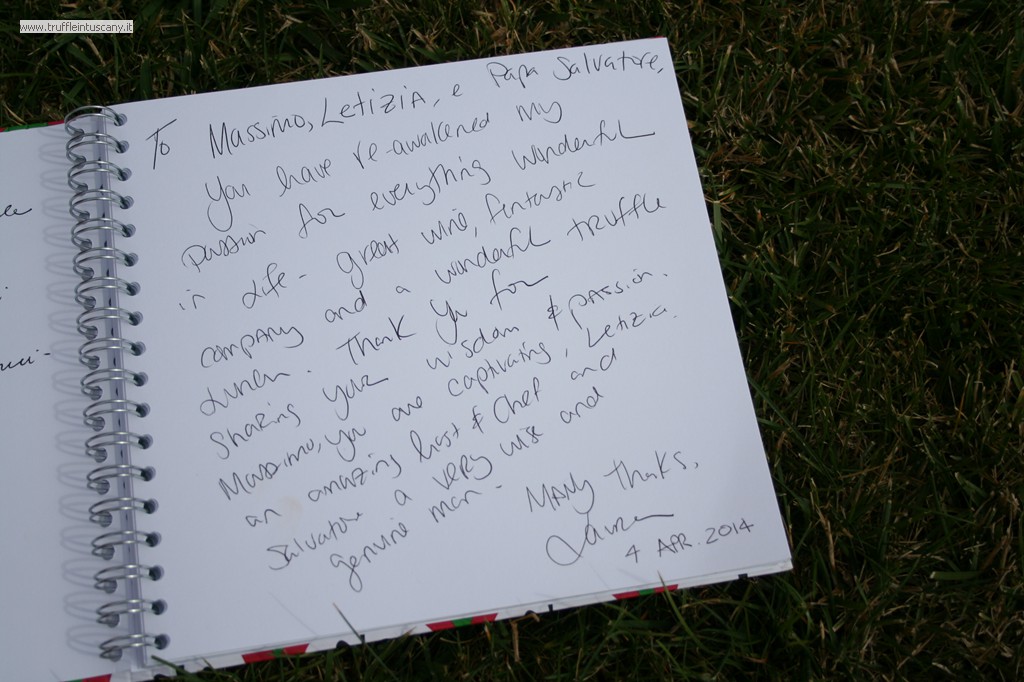 www.truffleintuscany.it
To Massimo, Letizia, e Papa Salvatore,
You have re-awakened my
passion for everything wonderful
in life - great wine, fantastic
company and a wonderful truffle
lunch. Thank you for
sharing your wisdom & passion.
Massimo, you are captivating, Letizia.
an amazing host & Chef and
Salvatore a very wise and
genuine man -
Many thanks,
Lauren
4 Apr. 2014